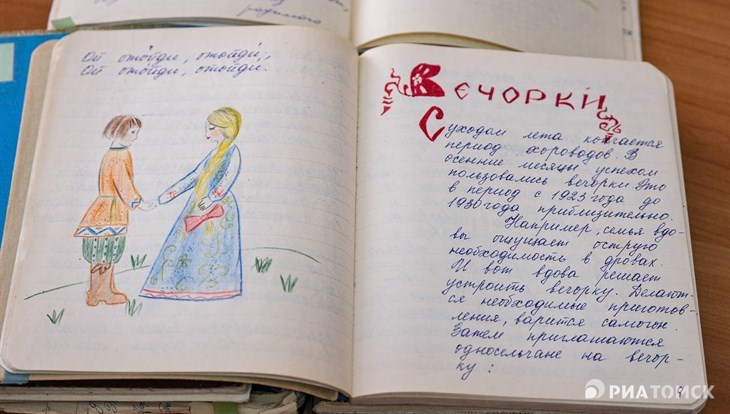 родимого
Ой отойди, отойди,
Ой отойди, отойди.
Вечорки
С уходом лета кончается
период хороводов. В
осенние месяцы успехом
пользовались вечорки. Это
в период с 1923 года до
1930 года приблизительно.
Например, семья вдо-
вы ощущает острую
необходимость в дровах.
И вот вдова решает
устроить вечорку. Делают-
ся необходимые приготов-
ления, варится самогон.
Затем приглашаются
односельчане на вечор-
ку:
РИАТОМСК